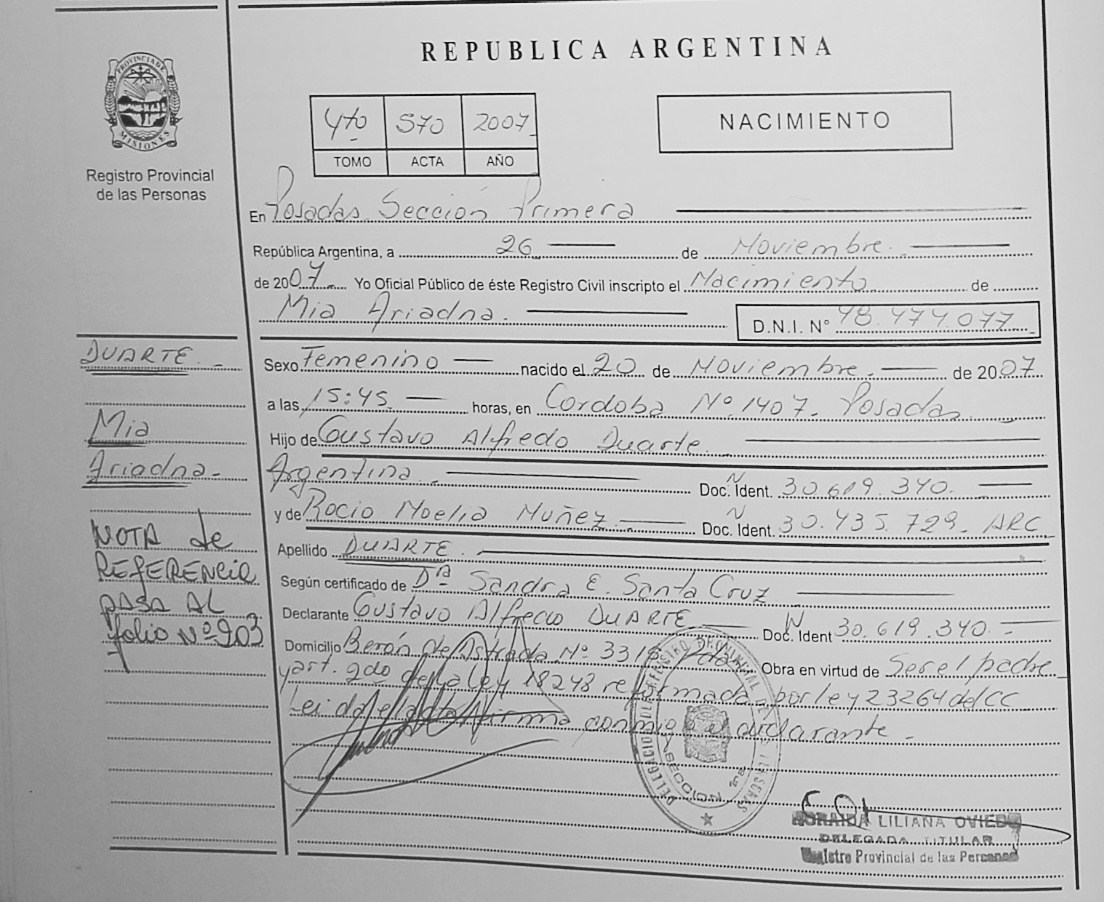 REPUBLICA ARGENTINA
PROVINCIA DE MISIONES
Registro Provincial
de las Personas
4to 570 2007
TOMO ACTA AÑO
NACIMIENTO
En Posadas Sección Primera
República Argentina, a 26 de Noviembre
de 2007 Yo Oficial Público de éste Registro Civil inscripto el Nacimiento de
Mia Ariadna.
D.N.I. N° 48.474.077
Sexo Femenino nacido el 20 de Noviembre. de 2007
a las 15:45 horas, en Cordoba Nº 1407. Posadas
Hijo de Gustavo Alfredo Duarte
Argentina Doc. Ident. N 30.619.340.
y de Rocio Noelia Muñez Doc. Ident. N 30.435.729. ARG
Apellido DUARTE.
Según certificado de Dª Sandra E. Santa Cruz
Declarante Gustavo Alfredo DUARTE Doc. Ident N 30.619.340
Domicilio Berón de Astrada Nº 3318 Pdas Obra en virtud de Ser el padre
y art. 2do de la ley 18248 reformada por ley 23264 del CC
Leida el acta firma conmigo el declarante.
DUARTE.
Mia
Ariadna.
NOTA de
REFERENCIA
PASA AL
folio Nº 203
SECCION
LILIANA OVIEDO
DELEGADA TITULAR
Registro Provincial de las Personas